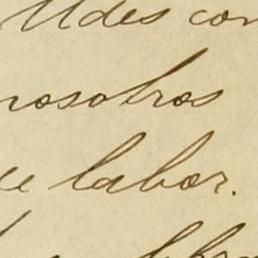 Udes con
nosotros
labor.